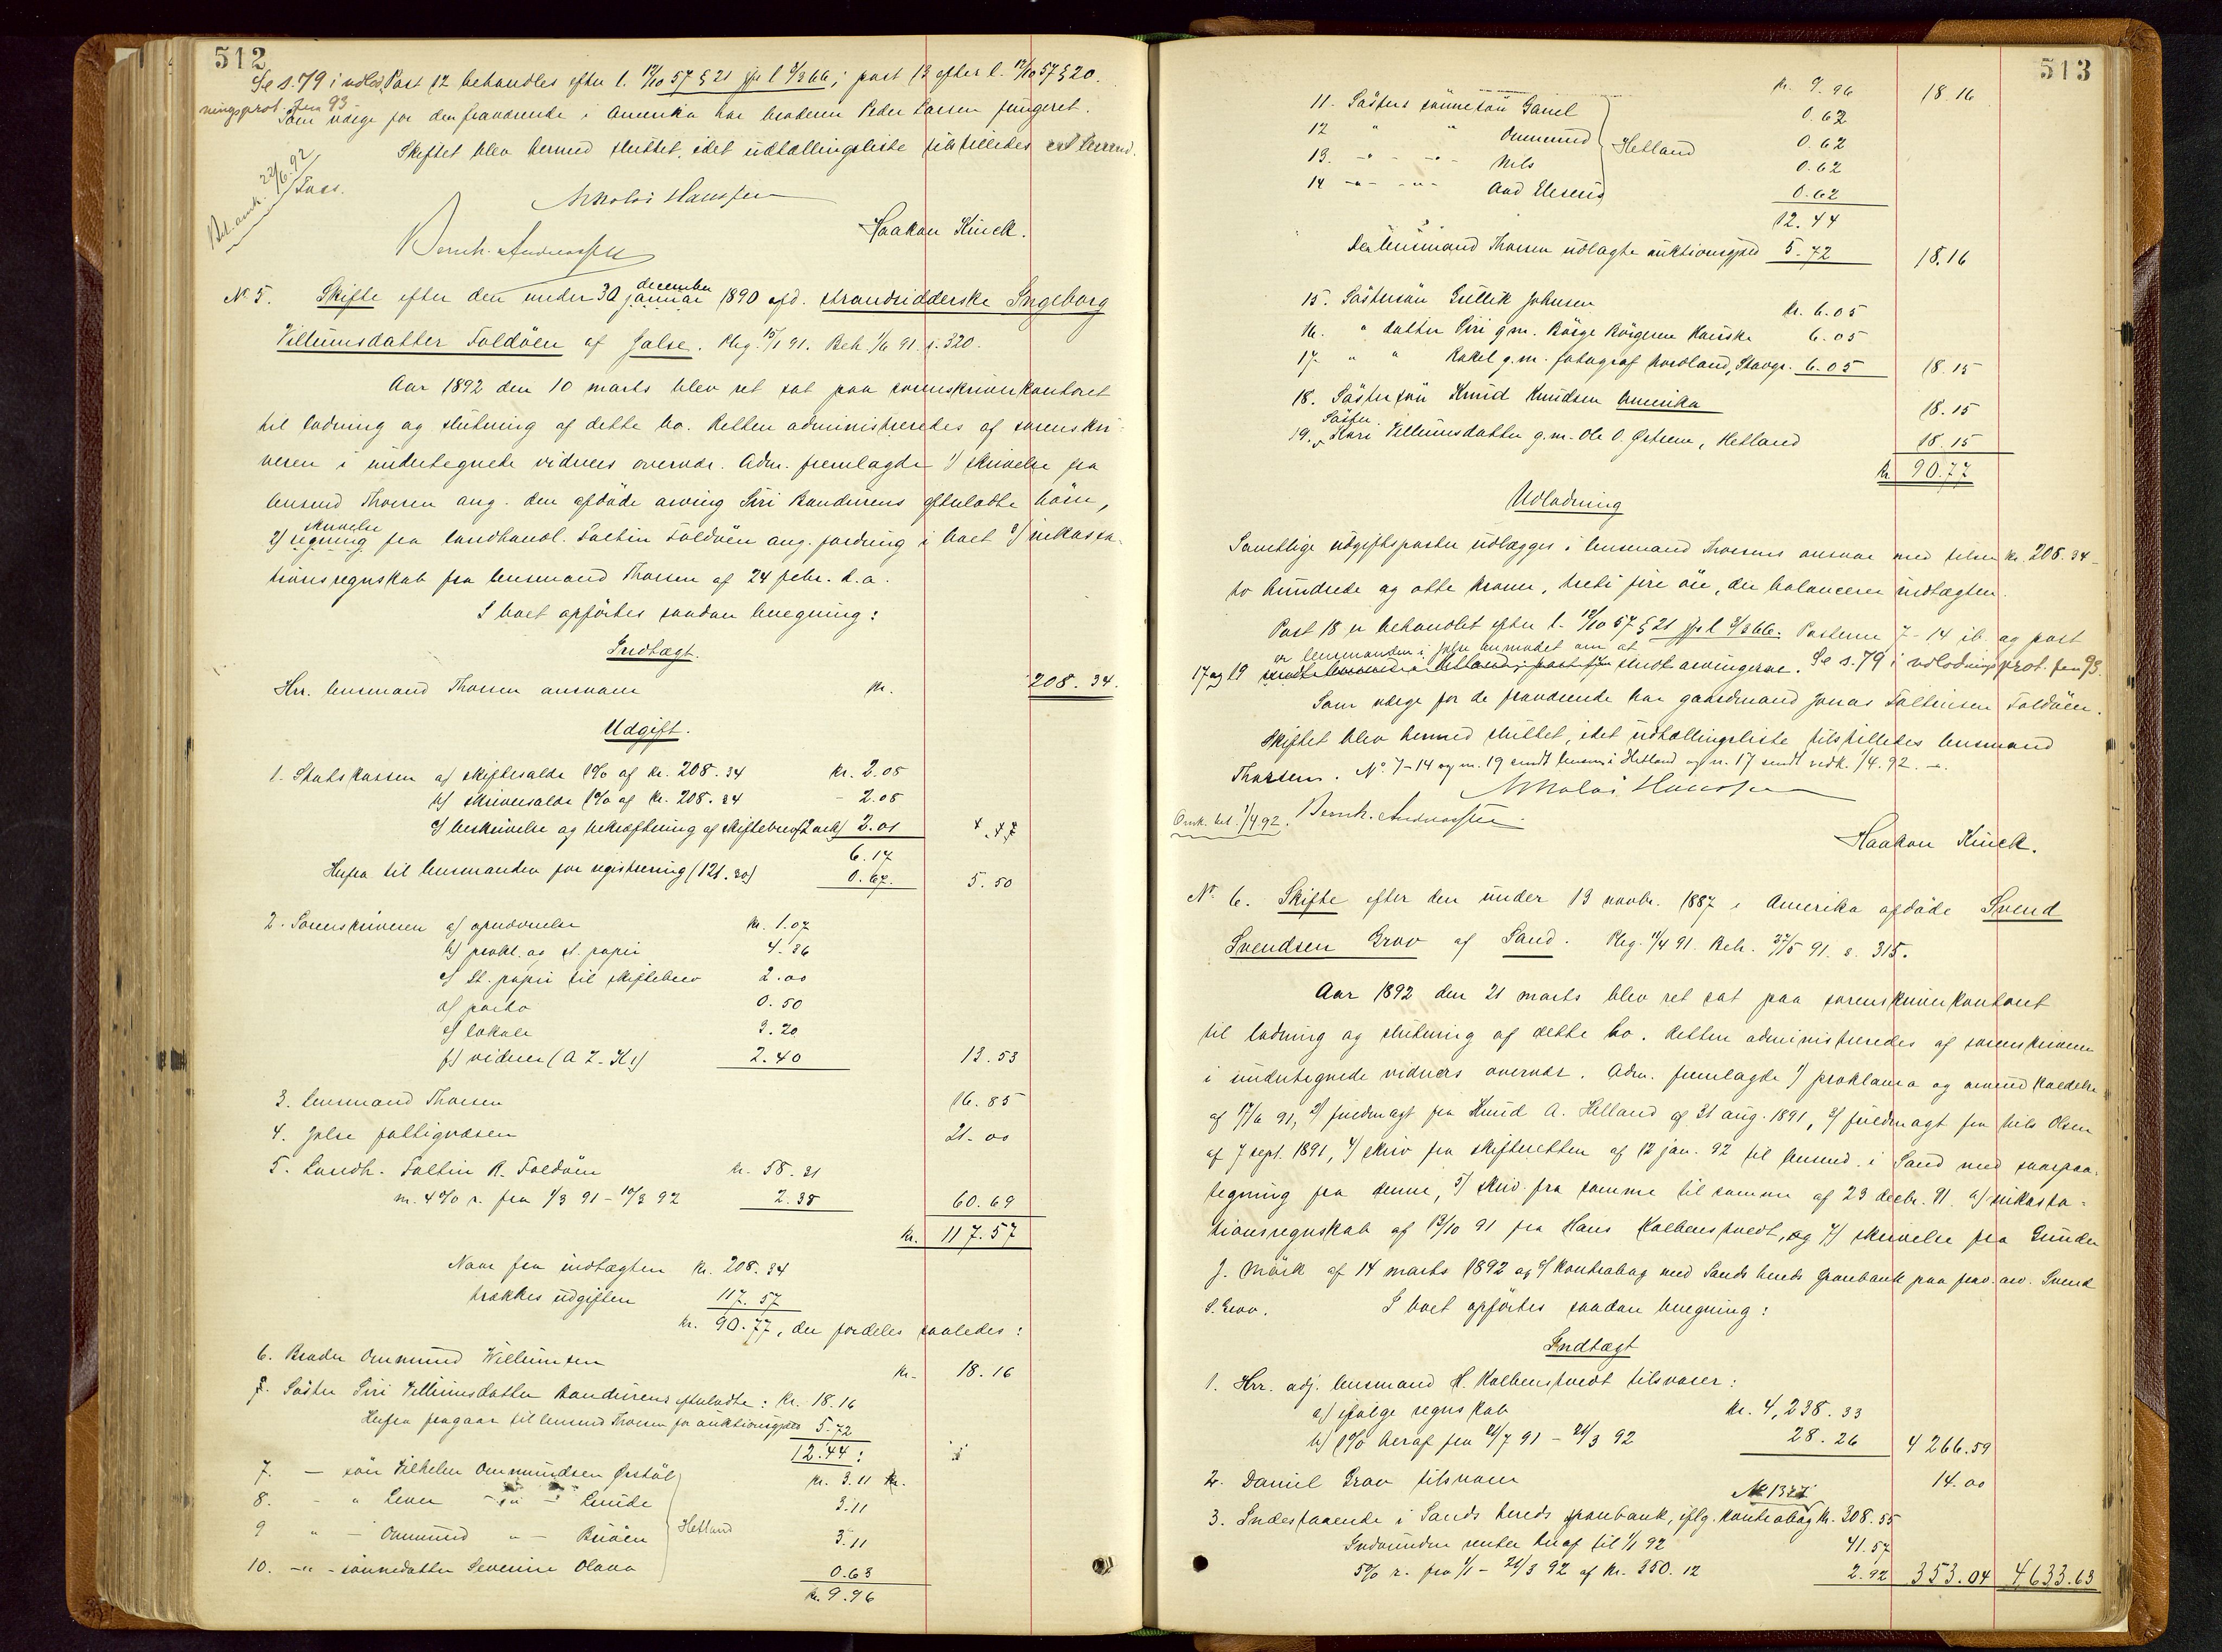 512
Se s. 79 i udlod- Post 12 behandles efter l. 12/10 57 § 21 jfr l 3/3 66; post 13 efter l. 12/10 57 § 20.
ningsprot. fra 93
Som værge for den fraværende i Amerika har broderen Peder Larsen fungeret.
Skiftet blev hermed sluttet, idet udtællingsliste tilstilledes
Bet. anm. 22/6. 92
Nikolai Hanssen
Haakon Kinck.
Bernh. Andreassen
No 5. Skifte efter den under 30 januar december 1890 afd. strandsidderske Ingeborg
Villumsdatter Foldöen af Jælse. Reg. 15/1 91. Beh. 1/6 91 s. 320.
Aar 1892 den 10 marts blev ret sat paa sorenskriverkontoret
til lodning og slutning af dette bo. Retten administreredes af sorenskri-
veren i undertegnede vidners overvær. Adm. fremlagde 1) skrivelse fra
lensmd Thorsen ang. den afdöde arving Siri Bandurens efterladte börn,
2) regning skrivelse fra landhandl. Faltin Foldöen ang. fordring i boet 3) inkassa-
tionsregnskab fra lensmand Thorsen af 24 febr. d.a.
I boet opförtes saadan beregning:
Indtægt.
Hrr. lensmand Thorsen ansvarer kr. 208.34.
Udgift.
1. Statskassen a) skifteafgift 1% af kr. 208.34 kr. 2.08
b) skriversalær 1% af kr. 208.34 - 2.08
c) beskrivelse og bekræftning af skiftebrev (2 ark) 2.01
6.17
Herfra til lensmanden for registrering (121.30) 0.67. 5.50
2. Sorenskriveren a) opnævnelse kr. 1.07
b) prokl. og st. papir 4.36
c) St. papir til skiftebrev 2.00
d) porto 0.50
e) lokale 3.20
f) vidner (A Z-K 1) 2.40 13.53
3. lensmand Thorsen 16.85
4. Jælse fattigvæsen 21.00
5. Landh. Faltin R. Foldöen kr. 58.31
m. 4% r. fra 1/3 91 - 10/3 92 2.38 60.69
kr. 117.57
Naar fra indtægten kr. 208.34
trækkes udgiften 117.57
kr. 90.77, der fordeles saaledes:
6. Broder Ommund Willumsen kr. 18.16
7. Söster Siri Villumsdatter Bandurens efterladte: kr. 18.16
Herfra fragaar til lensmd Thorsen for auktionsgjæld 5.72
12.44:
7. — sön Vilhelm Ommundsen kr. 3.11 kr.
8. - " 3.11
9 " - Ommund " - Hetland 3.11
10. -"- sönnedatter Severine Olava 0.63
kr. 9.96
513
kr. 9.96 18.16
11. Sösters sönnesön Gabriel 0.62
12 " " Ommund Hetland 0.62
13. -"- -"- Nils 0.62
14 -"- -"- 0.62
12.44
Den lensmand Thorsen udlagte auktionsgjæld 5.72 18.16
15. Söstersön Gullik Johnsen kr. 6.05
16. " datter Siri g.m. Börge Börgesen 6.05
17. " " Rakel g.m. fotograf Nordland, Stavgr. 6.05 18.15
18. Söstersön Knud Knudsen Amerika 18.15
19. Söster Kari Villumsdatter g.m. Ole O. Østrem, Hetland 18.15
kr 90.77
Udlodning
Samtlige udgiftsposter udlægges i lensmand Thorsens ansvar med tilsn kr. 208.34 -
to hundrede og otte kroner, treti fire öre, der balancerer indtægten.
Post 18 er behandlet efter l. 12/10 57 § 21 jfr l 3/3 66. Posterne 7-14 ib. og post
er lensmanden i Jelse anmodet om at
17 og 19 sendt arvingerne. Se s. 79 i udlodningsprot. fra 93.
Som værge for de fraværende har gaardmand Jonas Faltinsen Foldöen.
Skiftet blev hermed sluttet, idet udtællingsliste tilstilledes lensmand
Thorsen. No 7-14 og nr. 19 sendt lensm. i Hetland og nr. 17 sendt vedk. 1/4.92.
Nikolai Hanssen
Omk. bet. 1/4 92. Bernh. Andreassen
Haakon Kinck.
No 6. Skifte efter den under 13 novbr. 1887 i Amerika afdöde Svend
Svendsen Grov af Sand. Reg. 11/4 91. Beh. 27/5 91. s. 315.
Aar 1892 den 21 marts blev ret sat paa sorenskriverkontoret
til lodning og slutning af dette bo. Retten administreredes af sorenskriveren
i undertegnede vidners overvær. Adm. fremlagde 1) proklama og arveindkaldelse
af 17/6 91, 2) fuldmagt fra Knud A. Helland af 31 aug. 1891, 3) fuldmagt fra Nils Olsen
af 7 sept. 1891, 4) skriv fra skifteretten af 12 jan. 92 til lensmd. i Sand med svarpaa-
tegning fra denne, 5) skriv. fra samme til samme af 23 decbr. 91. 6) inkassa-
tionsregnskab af 13/10 91 fra Hans Kolbenstvedt, og 7) skrivelse fra Gunder
J. Mörk af 14 marts 1892 og 8) kontrabog med Sands herreds sparebank paa frav. arv. Svend
S. Grov. I boet opförtes saadan beregning:
Indtægt
1. Hrr. adj. lensmand H. Kolbenstvedt tilsvarer:
a) ifölge regnskab kr. 4,238.33
b) 1% heraf fra 21/7 91 - 21/3 92 28.26 4266.59
2. Daniel Grov tilsvarer 14.00
No 1321
3. Indestaaende i Sands hereds sparebank, iflg. kontrabog kr. 308.55
Indvundne renter heraf til 1/1 92 41.57
5% r. fra 1/1 - 21/3 92 af kr. 350.12 2.92 353.04 4633.63